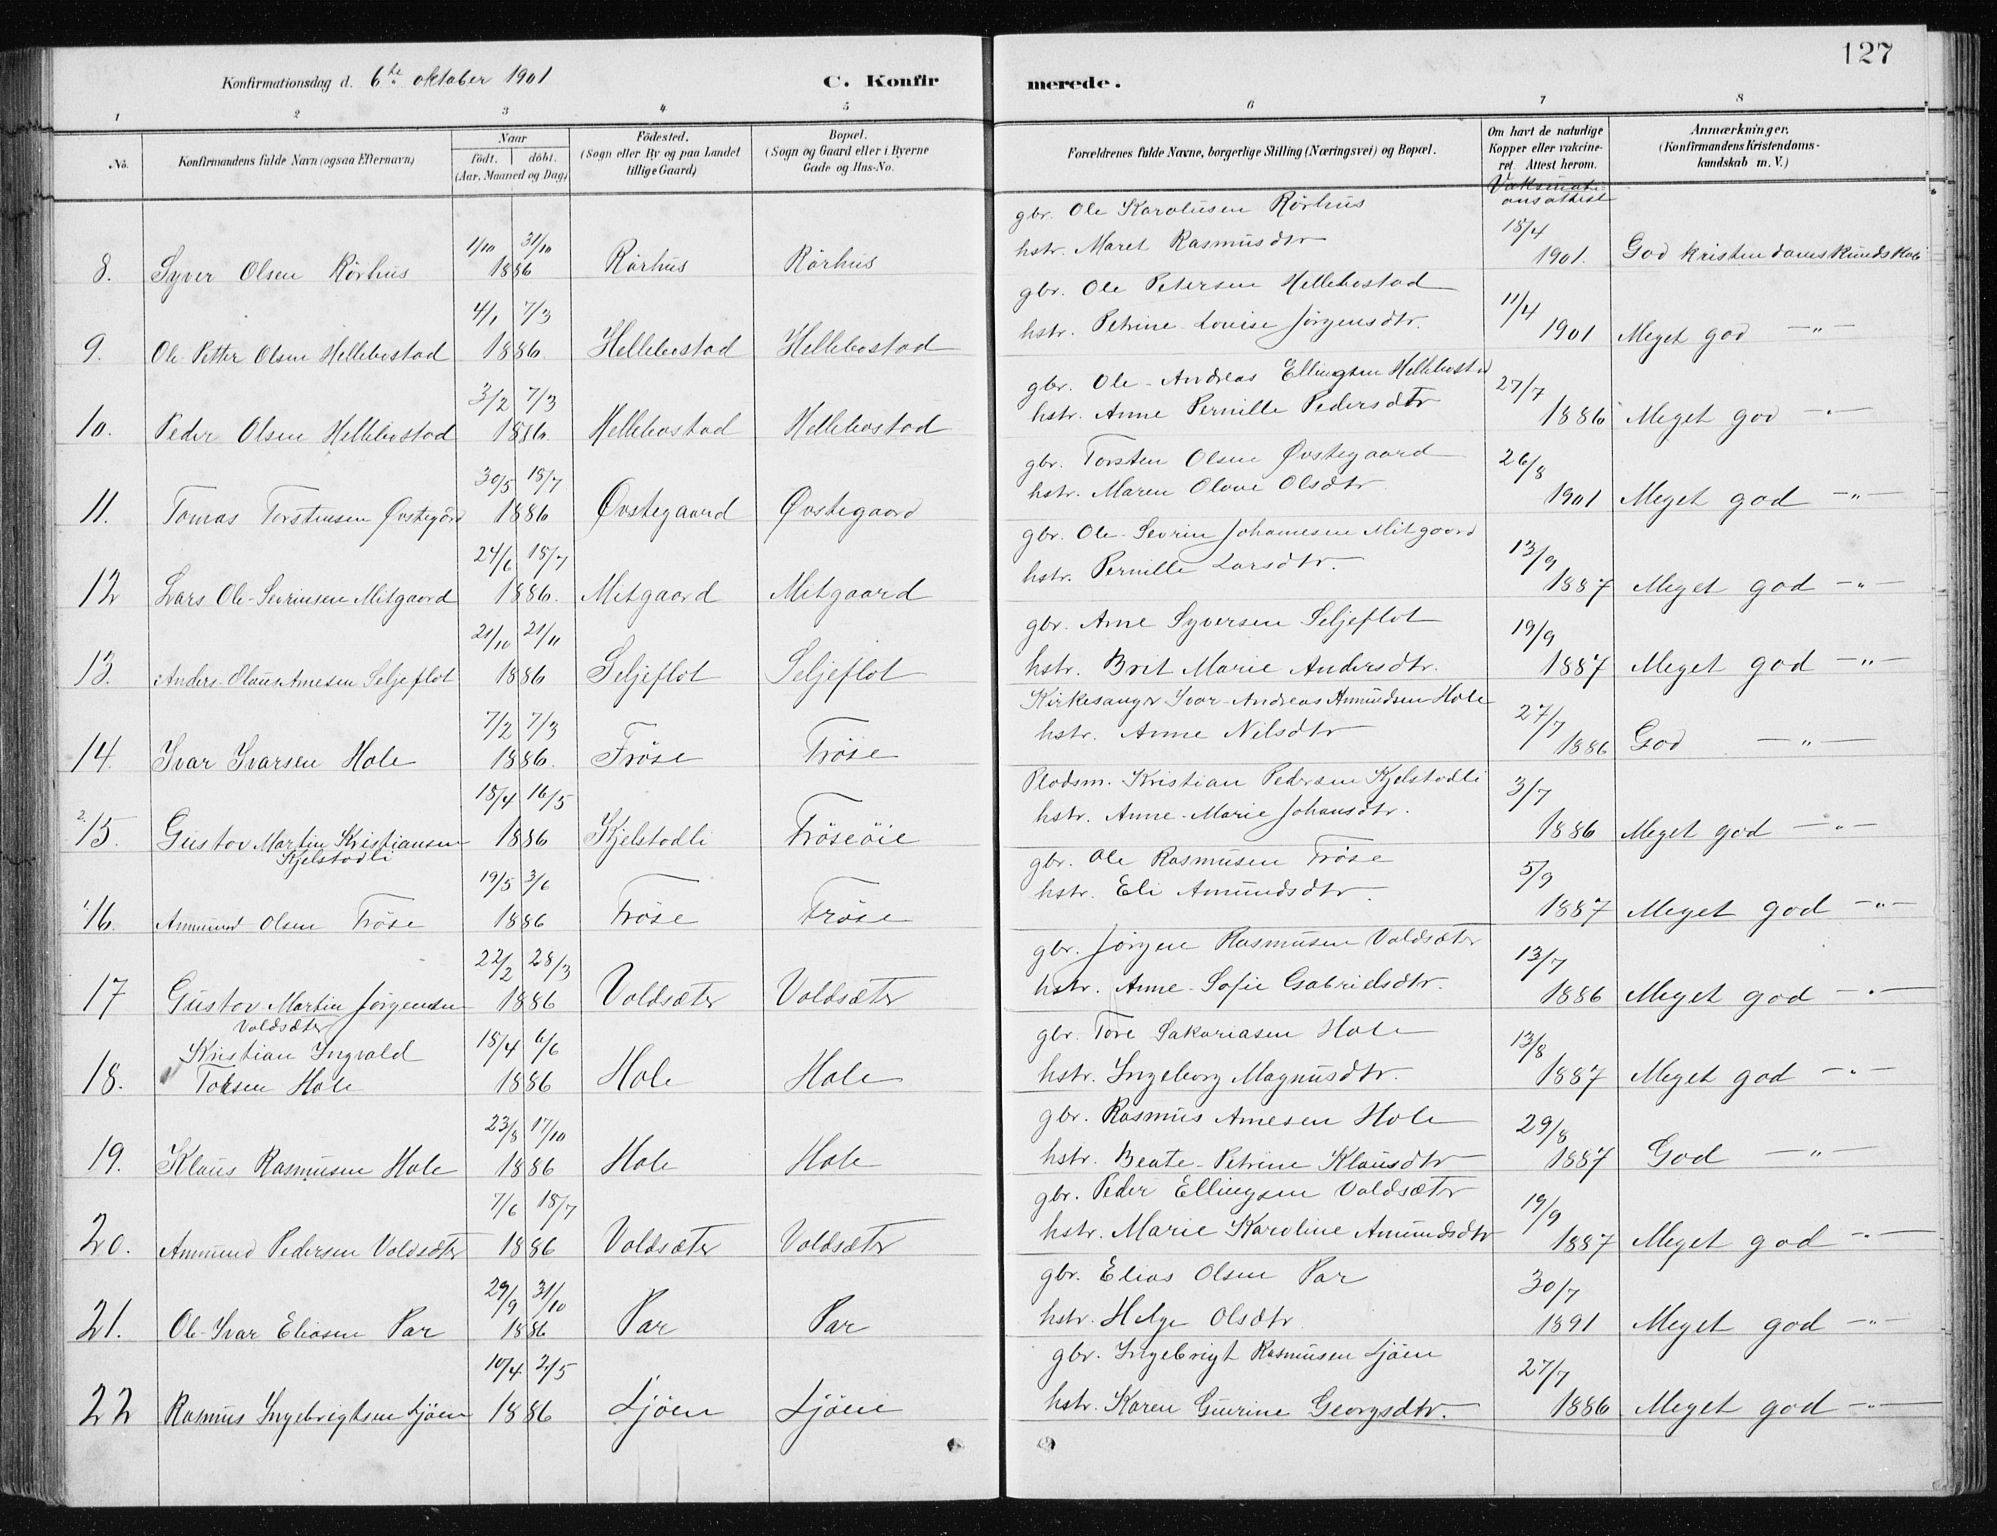 127
Konfirmationsdag d. 6te oktober 1901 C. Konfir merede.
1 2 3 4 5 6 7 8
No. Konfirmandens fulde Navn (ogsaa Efternavn) Naar födt. döbt. (Aar, Maaned og Dag) Födested. (Sogn eller By og paa Landet tillige Gaard) Bopæl. (Sogn og Gaard eller i Byerne Gade og Hus-No. Forældrenes fulde Navne, borgerlige Stilling (Næringsvei) og Bopæl. Om havt de naturlige Kopper eller vakcineret. Attest herom. Anmærkninger. (Konfirmandens Kristendomskundskab m. V.)
gbr. Ole Karolusen Rörhus
8. Syver Olsen Rörhus 1/10 31/10 1886 Rörhus Rörhus hstr. Maret Rasmusdtr 15/4 1901. God kristendomskundskab
gbr. Ole Petersen Hellebostad
9. Ole Petter Olsen Hellebostad 4/1 7/3 1886. Hellebostad Hellebostad hstr. Petrine Louise Jörgensdtr. 11/4 1901 Meget god —"—
gbr. Ole Andreas Ellingsen Hellebostad
10. Peder Olsen Hellebostad 3/2 7/3 1886. Hellebostad Hellebostad hstr. Anne Pernille Pedersdtr 27/7 1886 Meget god —"—
gbr. Torsten Olsen Øvstegaard
11. Tomas Torstensen Øvstegård 30/5 18/7 1886 Øvstegaard Øvstegaard hstr. Maren Olove Olsdtr 26/8 1901 Meget god —"—
gbr. Ole Sevrin Johannesen Mitgaard
12 Lars Ole-Sevrinsen Mitgaard 24/6 18/7 1886. Mitgaard Mitgaard hstr. Pernille Larsdtr. 13/9 1887 Meget god —"—
gbr. Arne Syversen Seljeflot
13. Anders Olaus Arnesen Seljeflot 21/10 21/11 1886 Seljeflot Seljeflot hstr. Brit Marie Andersdtr. 19/9 1887 Meget god —"—
Kirkesanger Ivar Andreas Amundsen Hole
14. Ivar Ivarsen Hole 7/2 7/3 1886. Fröse Fröse hstr. Anne Nilsdtr 27/7 1886 God —"—
Pladsm. Kristian Pedersen Kjelstadli
15. Gustav Martin Kristiansen Kjelstadli 18/4 16/5 1886 Kjelstadli Fröseöie hstr. Anne-Marie Johansdtr. 3/7 1886 Meget god —"—
gbr. Ole Rasmusen Fröse
16. Ammund Olsen Fröse 19/5 3/6 1886 Fröse Fröse hstr. Eli Amundsdtr. 5/9 1887 Meget god —"—
gbr. Jörgen Rasmusen Voldsæter
17 Gustav Martin Jörgensen Voldsæter 22/2 28/3 1886 Voldsæter Voldsæter hstr. Anne Sofie Gabrielsdtr. 13/7 1886 Meget god —"—
gbr. Tore Sakariasen Hole
18. Kristian Ingvald Toresen Hole 18/4 6/6 1886 Hole Hole hstr. Ingeborg Magnusdtr. 13/8 1887 Meget god —"—
gbr. Rasmus Arnesen Hole
19. Klaus Rasmusen Hole 23/8 17/10 1886 Hole Hole hstr. Beate-Petrine Klausdtr 29/8 1887 God —"—
gbr. Peder Ellingsen Voldsæter
20. Ammund Pedersen Voldsæter 7/6 18/7 1886 Voldsæter Voldsæter hstr. Marie Karoline Amundsdtr 19/9 1887 Meget god —"—
gbr. Elias Olsen Par
21. Ole-Ivar Eliasen Par 29/9 31/10 1886 Par Par hstr. Helge Olsdtr. 30/7 1891 Meget god —"—
gbr. Ingebrigt Rasmusen Ljöen
22 Rasmus Ingebrigtsen Ljöen 10/4 2/5 1886 Ljöen Ljöen hstr. Karen Gurine Georgsdtr. 27/7 1886 Meget god —"—